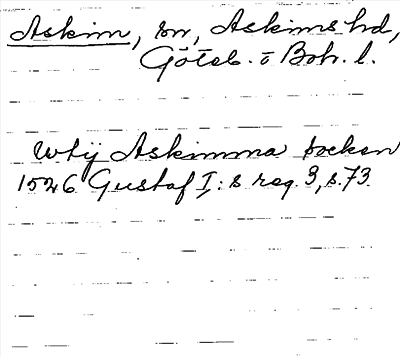 Askim, sn, Askims hd,
Göteb. o Boh. l.
Wtij Askimma socken
1526 Gustaf I:s reg. 3, s. 73.